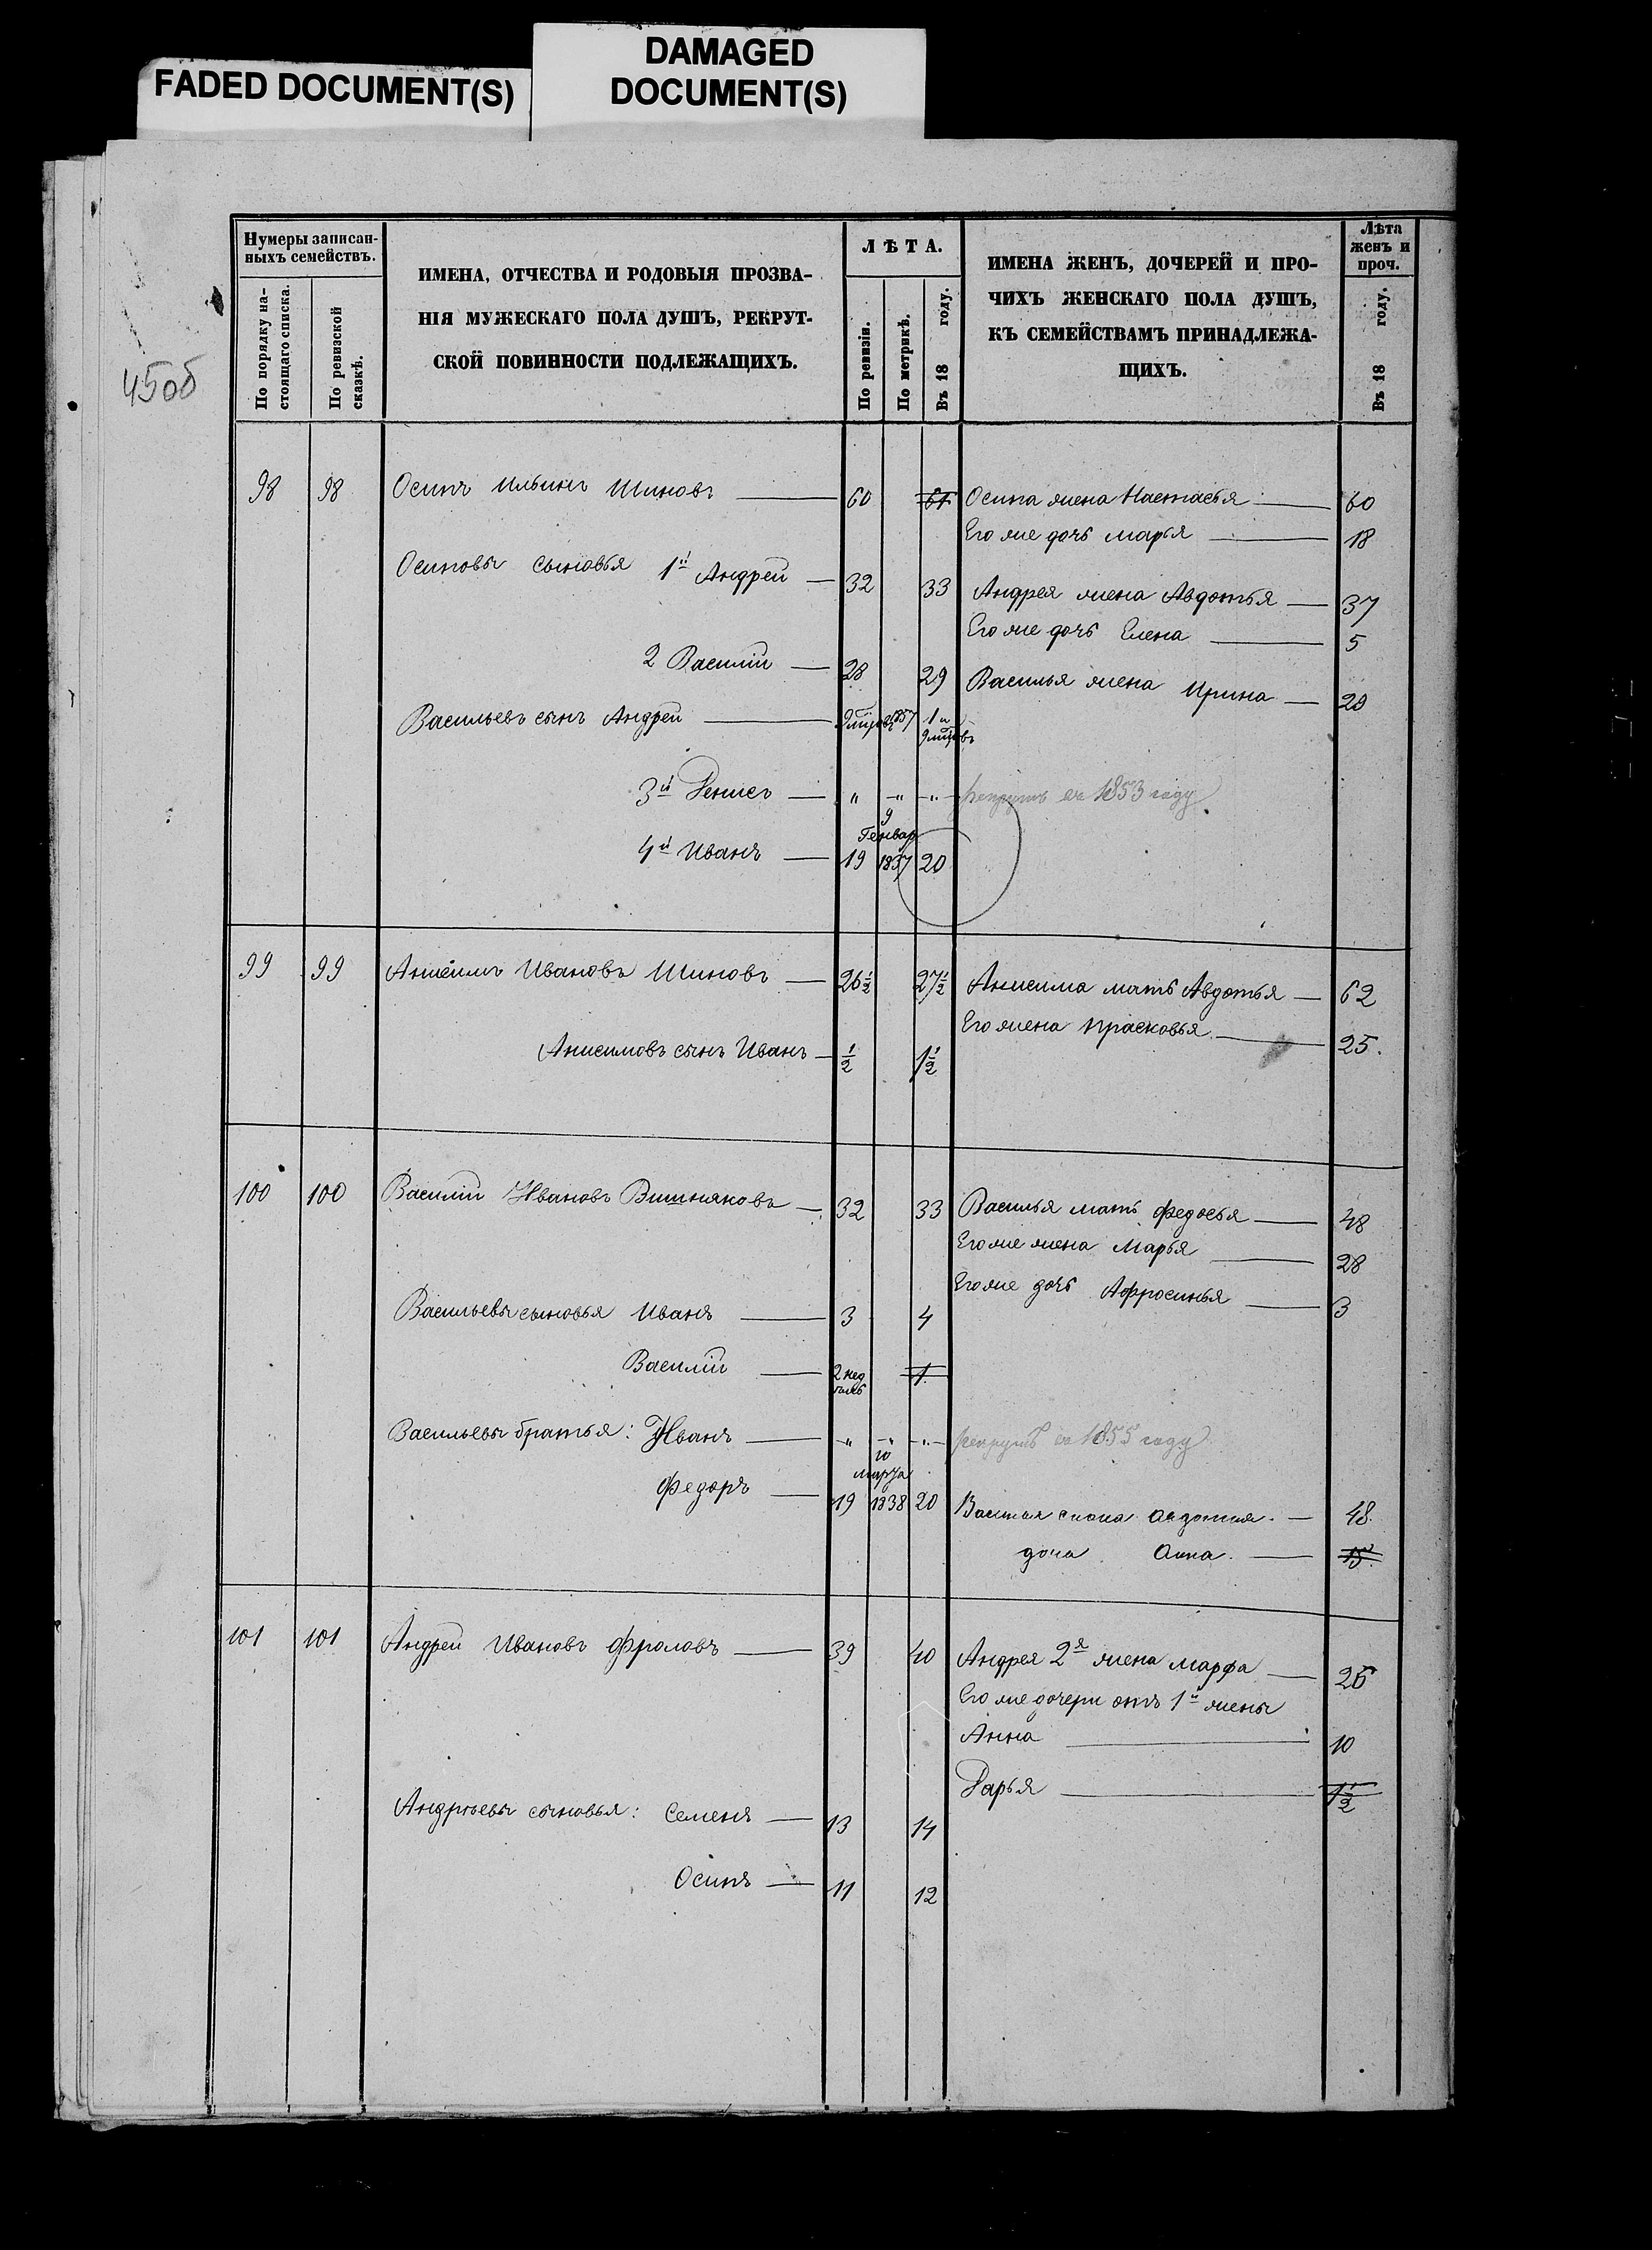 FADED DOCUMENT(S)
DAMAGED
DOCUMENT(S)
45об
Нумеры записан-
ныхъ семействъ.
По порядку на-
стоящаго списка.
По ревизской
сказкѣ.
ИМЕНА, ОТЧЕСТВА И РОДОВЫЯ ПРОЗВА-
НІЯ МУЖЕСКАГО ПОЛА ДУШЪ, РЕКРУТ-
СКОЙ ПОВИННОСТИ ПОДЛЕЖАЩИХЪ.
ЛѢТА.
По ревизіи.
По метрикѣ.
Въ 18 году.
ИМЕНА ЖЕНЪ, ДОЧЕРЕЙ И ПРО-
ЧИХЪ ЖЕНСКАГО ПОЛА ДУШЪ,
КЪ СЕМЕЙСТВАМЪ ПРИНАДЛЕЖА-
ЩИХЪ.
Лѣта
женъ и
проч.
Въ 18 году.
98 98 Осипъ Ильинъ Шиновъ — 60 61 Осипа жена Настасья — 60
Его же дочь Марья — 18
Осиповы сыновья 1й Андрей — 32 33 Андрея жена Авдотья — 37
Его же дочь Елена — 5
2 Василій — 28 29 Василья жена Ирина — 29
Васильевъ сынъ Андрей — 9 мцовъ 1857 1 и
9 мцовъ
3й Денисъ — " -"- -"- рекрутъ въ 1853 году
9
Генвар
4й Иванъ — 19 1837 20
99 99 Анисимъ Ивановъ Шиновъ — 26½ 27½ Анисима мать Авдотья — 62
Его жена Прасковья — 25.
Анисимовъ сынъ Иванъ — ½ 1½
100 100 Василій Ивановъ Вишняковъ — 32 33 Василья мать Федосья — 48
Его же жена Марья — 28
Его же дочь Афросинья — 3
Васильевы сыновья Иванъ — 3 4
Василій — 2 нед 1
Васильевы братья: Иванъ — -"- -"- -"- рекрутъ въ 1855 году
10
марта
Федоръ — 19 1838 20 Авдотья. — 48.
доча Анна. — 15.
101 101 Андрей Ивановъ Фроловъ — 39 40 Андрея 2я жена Марфа — 26
Его же дочери отъ 1й жены
Анна — 10
Дарья — 1½
Андрѣевы сыновья: Семенъ — 13 14
Осипъ — 11 12